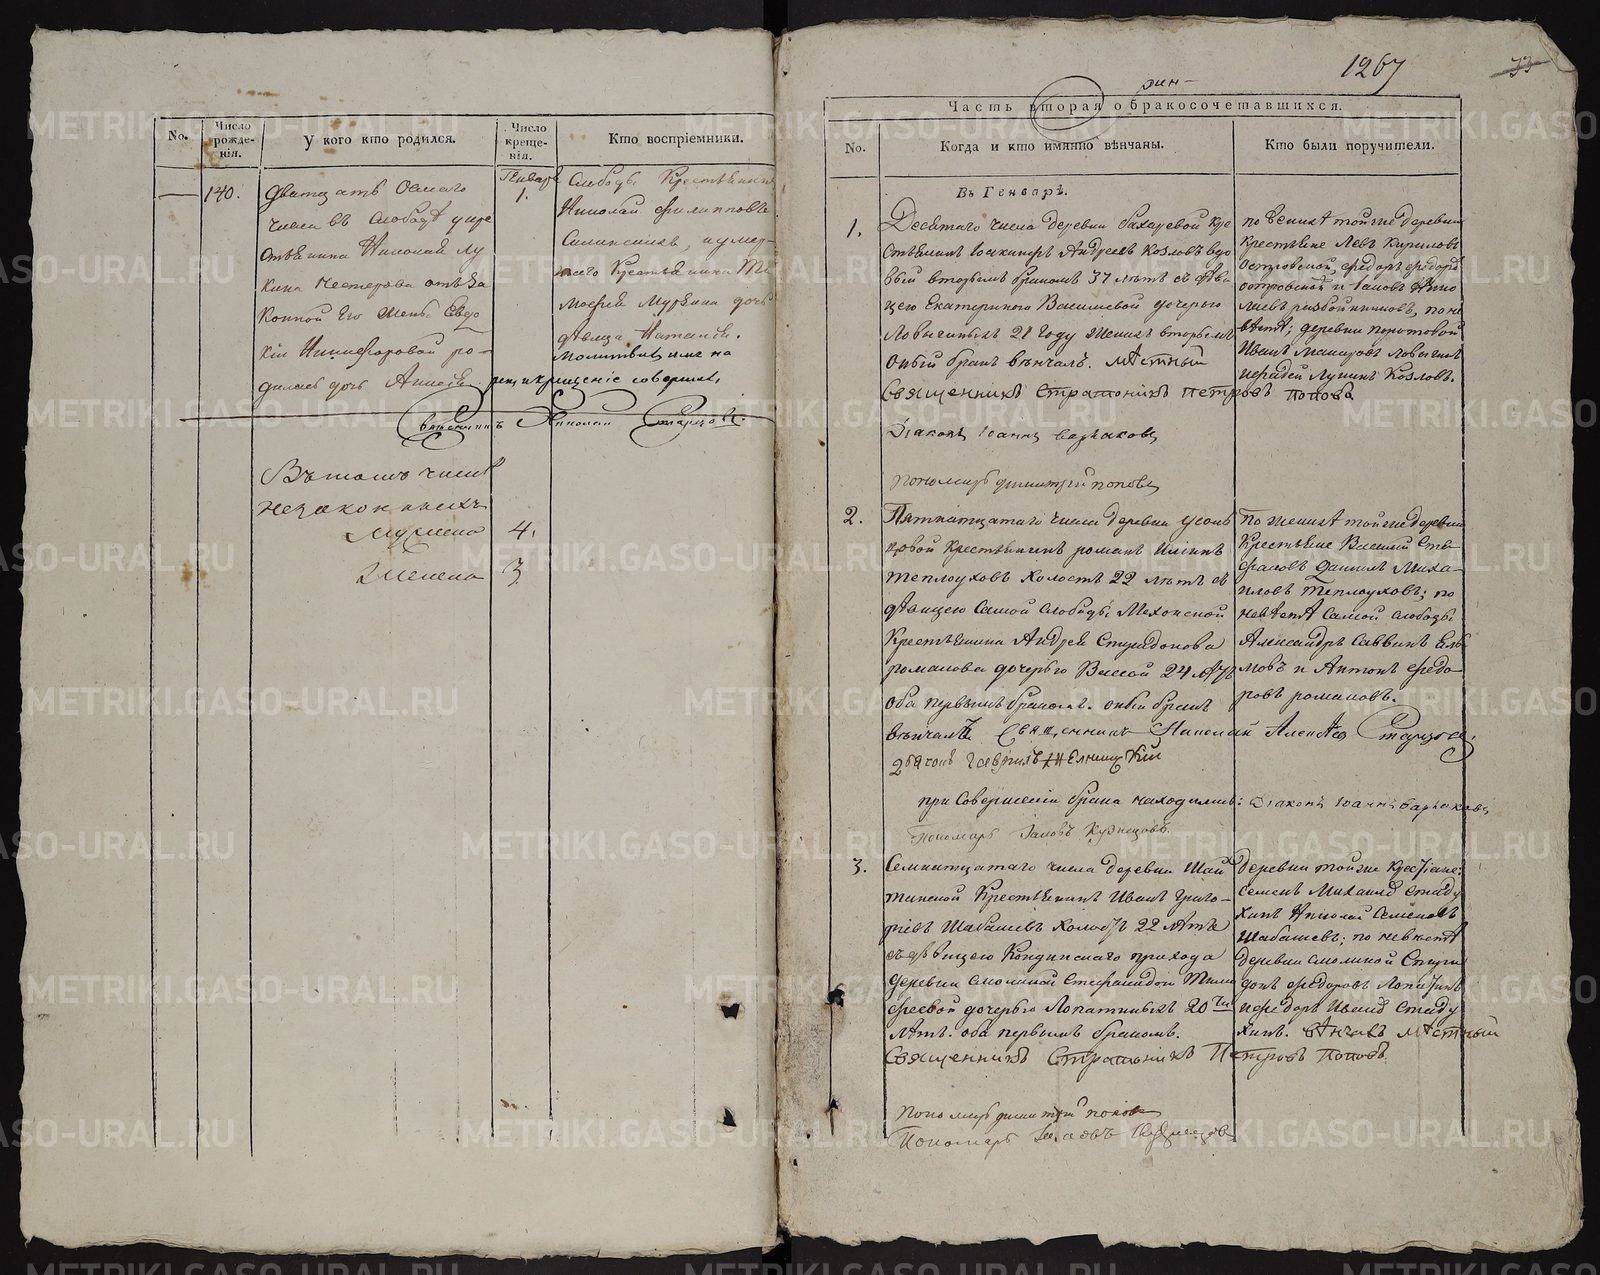 No.
Число рожде-нія.
У кого кто родился.
Число креще-нія.
Кто воспріемники.
140.
Дватцать осмаго
числа въ слободѣ у кре
стьянина Николая Лу
кина Нестерова отъ за
конной его жены Евдо
кіи Никифоровой ро-
дилась дочь Анисія
Генваря
1.
Слободы Крестьянинъ
Николай Филипповъ
умер-
шаго Крестьянина Ти
мофея Муркина дочь
дѣвица Наталья.
Молитву, имя на
рекъ и крещеніе совершалъ
Священникъ Николай Старцовъ.
Въ томъ числѣ
незаконныхъ
Мужеска 4.
Женска 3
1267
33
Часть вторая о бракосочетавшихся.
No.
Когда и кто имянно вѣнчаны.
Кто были поручители.
Въ Генварѣ.
1.
Десятаго числа деревни Бахаревой кре
стьянинъ Андреевъ Козловъ вдо
вый вторымъ бракомъ 37 лѣтъ съ дѣви
цею Екатериною Васильевой дочерью
Ловыгиныхъ 21 году женихъ вторымъ
Оный бракъ вѣнчалъ. Мѣстный
Священникъ Стратоникъ Петровъ Поповъ
Діаконъ Іоаннъ Барлаковъ
Пономарь Димитрій Поповъ
по женихѣ тойже деревни
крестьяне Левъ Кириловъ
Островской, Федоръ Федоровъ
Островской и Іаковъ Нико
лаевъ Разбойниковъ, по не
вѣстѣ; деревни
Иванъ Макаровъ Ловыгинъ
и Фадей Лукинъ Козловъ.
2.
Пятнатцатаго числа деревни Усоль
цовой Крестьянинъ Романъ Ильинъ
Теплоуховъ холостъ 22 лѣтъ съ
дѣвицею самой слободы Мехонской
Крестьянина Андрея Спиридонова
Романова дочерью Вассой 24 лѣтъ
оба первымъ бракомъ. оный бракъ
вѣнчалъ Священникъ Николай Алексѣевъ Старцовъ;
при совершеніи брака находились: Діаконъ Іоаннъ Барлаковъ
Пономарь Іаковъ Кузнецовъ.
По женихѣ тойже деревни
Крестьяне Василій Сте
фановъ Данилъ Миха-
иловъ Теплоуховъ; по
невѣстѣ самой слободы
Александръ Саввинъ
и Антонъ Федо-
ровъ Романовъ.
3.
Семнатцатаго числа деревни Шай
тинской Крестьянинъ Иванъ Григо-
рьевъ Шабашевъ холостъ 22 лѣтъ
съ дѣвицею Кондинскаго прихода
деревни Смолиной Стефанидой Тимо
феевой дочерью Лопатиныхъ 20ти
лѣтъ. оба первымъ бракомъ.
Священникъ Стратоникъ Петровъ Поповъ.
Пономарь Димитрій Поповъ
Пономарь Іаковъ Кузнецовъ
Деревни тойже крестьяне:
Семенъ Михаилъ Стаду
хинъ Николай Семеновъ
Шабашевъ; по невѣстѣ
деревни Смолиной Спири
донъ Федоровъ Лопатинъ
и Федоръ Стаду
хинъ. вѣнчалъ Мѣстный
METRIKI.GASO-URAL.RU